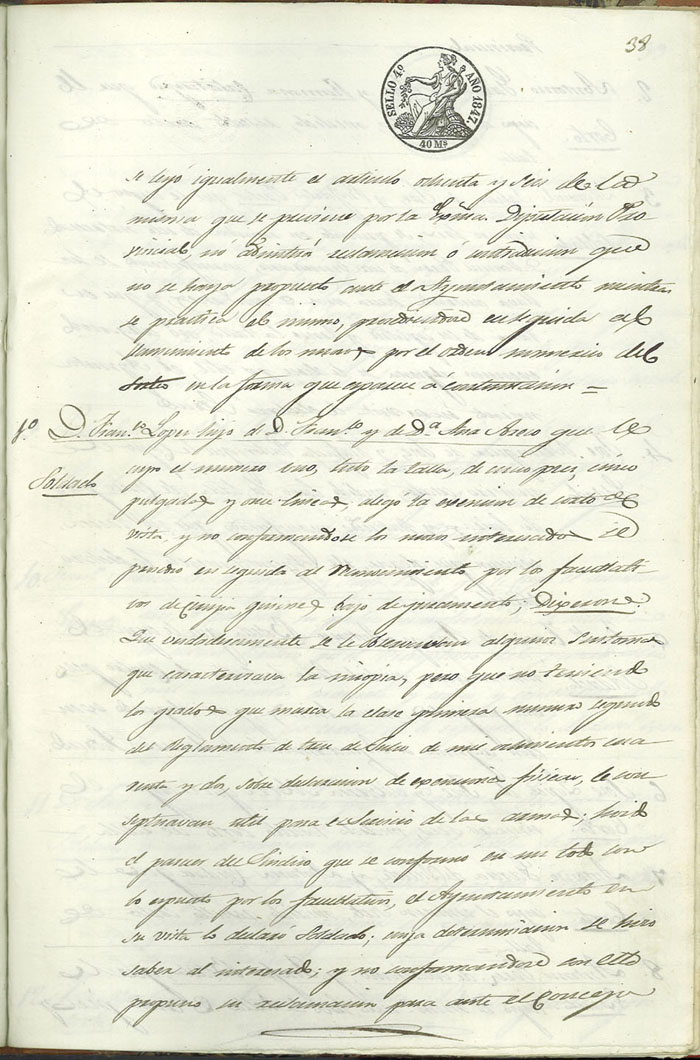 38
SELLO 4º AÑO 1847.
40 Ms
se leyó igualmente el articulo ochenta y seis de la
misma que se previene por la Exma. Diputación Pro
vincial, no admitirá reclamacion ó contradicion que
no se haya propuesto ante el Ayuntamiento mientras
se practica el mismo, procediendose en seguida al
llamamiento de los mozos por el orden numerico del
Sorteo en la forma que aparece á continuacion =
1º D. Franco Lopez hijo de D. Franco y de Da Ana que le
Soldado
cupo el numero uno, tubo la talla, de cinco pies, cinco
pulgadas y once lineas, alegó la esencion de corto de
vista, y no conformandose los mozos interesados se
procedió en seguida al reconocimiento por los facultati
vos de Cirujia quienes bajo de juramento; Dixeron:
Que verdaderamente se le observavan algunos sintomas
que caracterizava la miopia, pero que no teniendo
los grados que marca la clase primera numero segundo
del Reglamento de trece de Julio de mil ochocientos cua
renta y dos, sobre declaracion de esenciones fisicas, le con
septuavan util para el Servicio de las armas; hoido
el parecer del Sindico que se conformó en un todo con
lo espuesto por los facultativos, el Ayuntamiento en
su vista lo declaró Soldado; cuya determinacion se hizo
saber al interesado; y no conformandose con ello
propuso su reclamacion para ante el Concejo